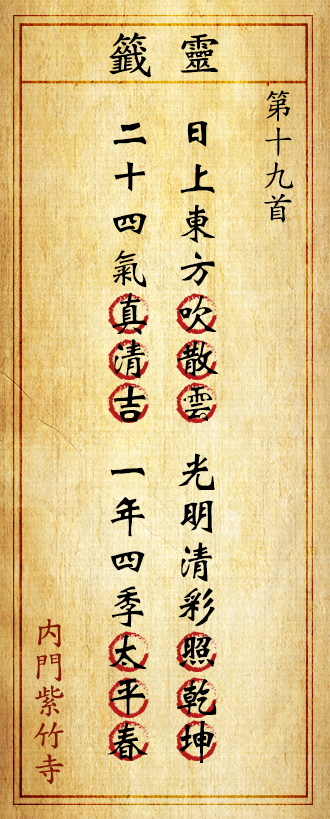 靈籤
第十九首
日上東方吹散雲 光明清彩照乾坤
二十四氣真清吉 一年四季太平春
内門紫竹寺